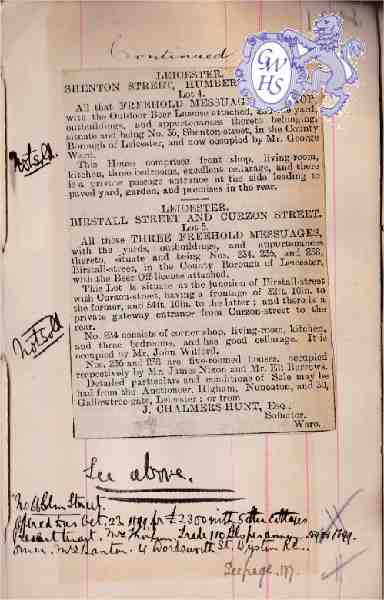 Continued
GWHS
LEICESTER.
SHENTON STREET, HUMBER
Lot 4.
All that FREEHOLD MESSUAGE
with the Outdoor Beer License attached, yard,
outbuildings, and appurtenances thereto belonging,
situate and being No. 36, Shenton-street, in the County
Borough of Leicester, and now occupied by Mr. George
Ward.
This House comprises front shop, living-room,
kitchen, three bedrooms, excellent cellarage, and there
is a private passage entrance at the side leading to
paved yard, garden, and premises in the rear.
Not sold.
LEICESTER.
BIRSTALL STREET AND CURZON STREET.
Lot 5.
All those THREE FREEHOLD MESSUAGES,
with the yards, outbuildings, and appurtenances
thereto, situate and being Nos. 234, 236, and 238,
Birstall-street, in the County Borough of Leicester,
with the Beer Off-license attached.
This Lot is situate at the junction of Birstall-street
with Curzon-street, having a frontage of 10in. to
the former, and 10in. to the latter; and there is a
private gateway entrance from Curzon-street to the
rear.
No. 234 consists of corner shop, living-room, kitchen,
and three bedrooms, and has good cellarage. It is
occupied by Mr. John Wilford.
Nos. 236 and 238 are five-roomed houses, occupied
respectively by Mr. James Nixon and Mr. Eli Burrows.
Detailed particulars and conditions of Sale may be
had from the Auctioneer, Higham, Nuneaton, and
Gallowtree-gate, Leicester; or from
J. CHALMERS-HUNT, Esq.,
Solicitor,
Ware.
Not Sold
See above.
No Elm Street.
Offered us Oct. 23 1899 for £2300 with cottages
Present tenant. Mrs Trade
Owner. Mrs 4 Wordsworth St.
See page